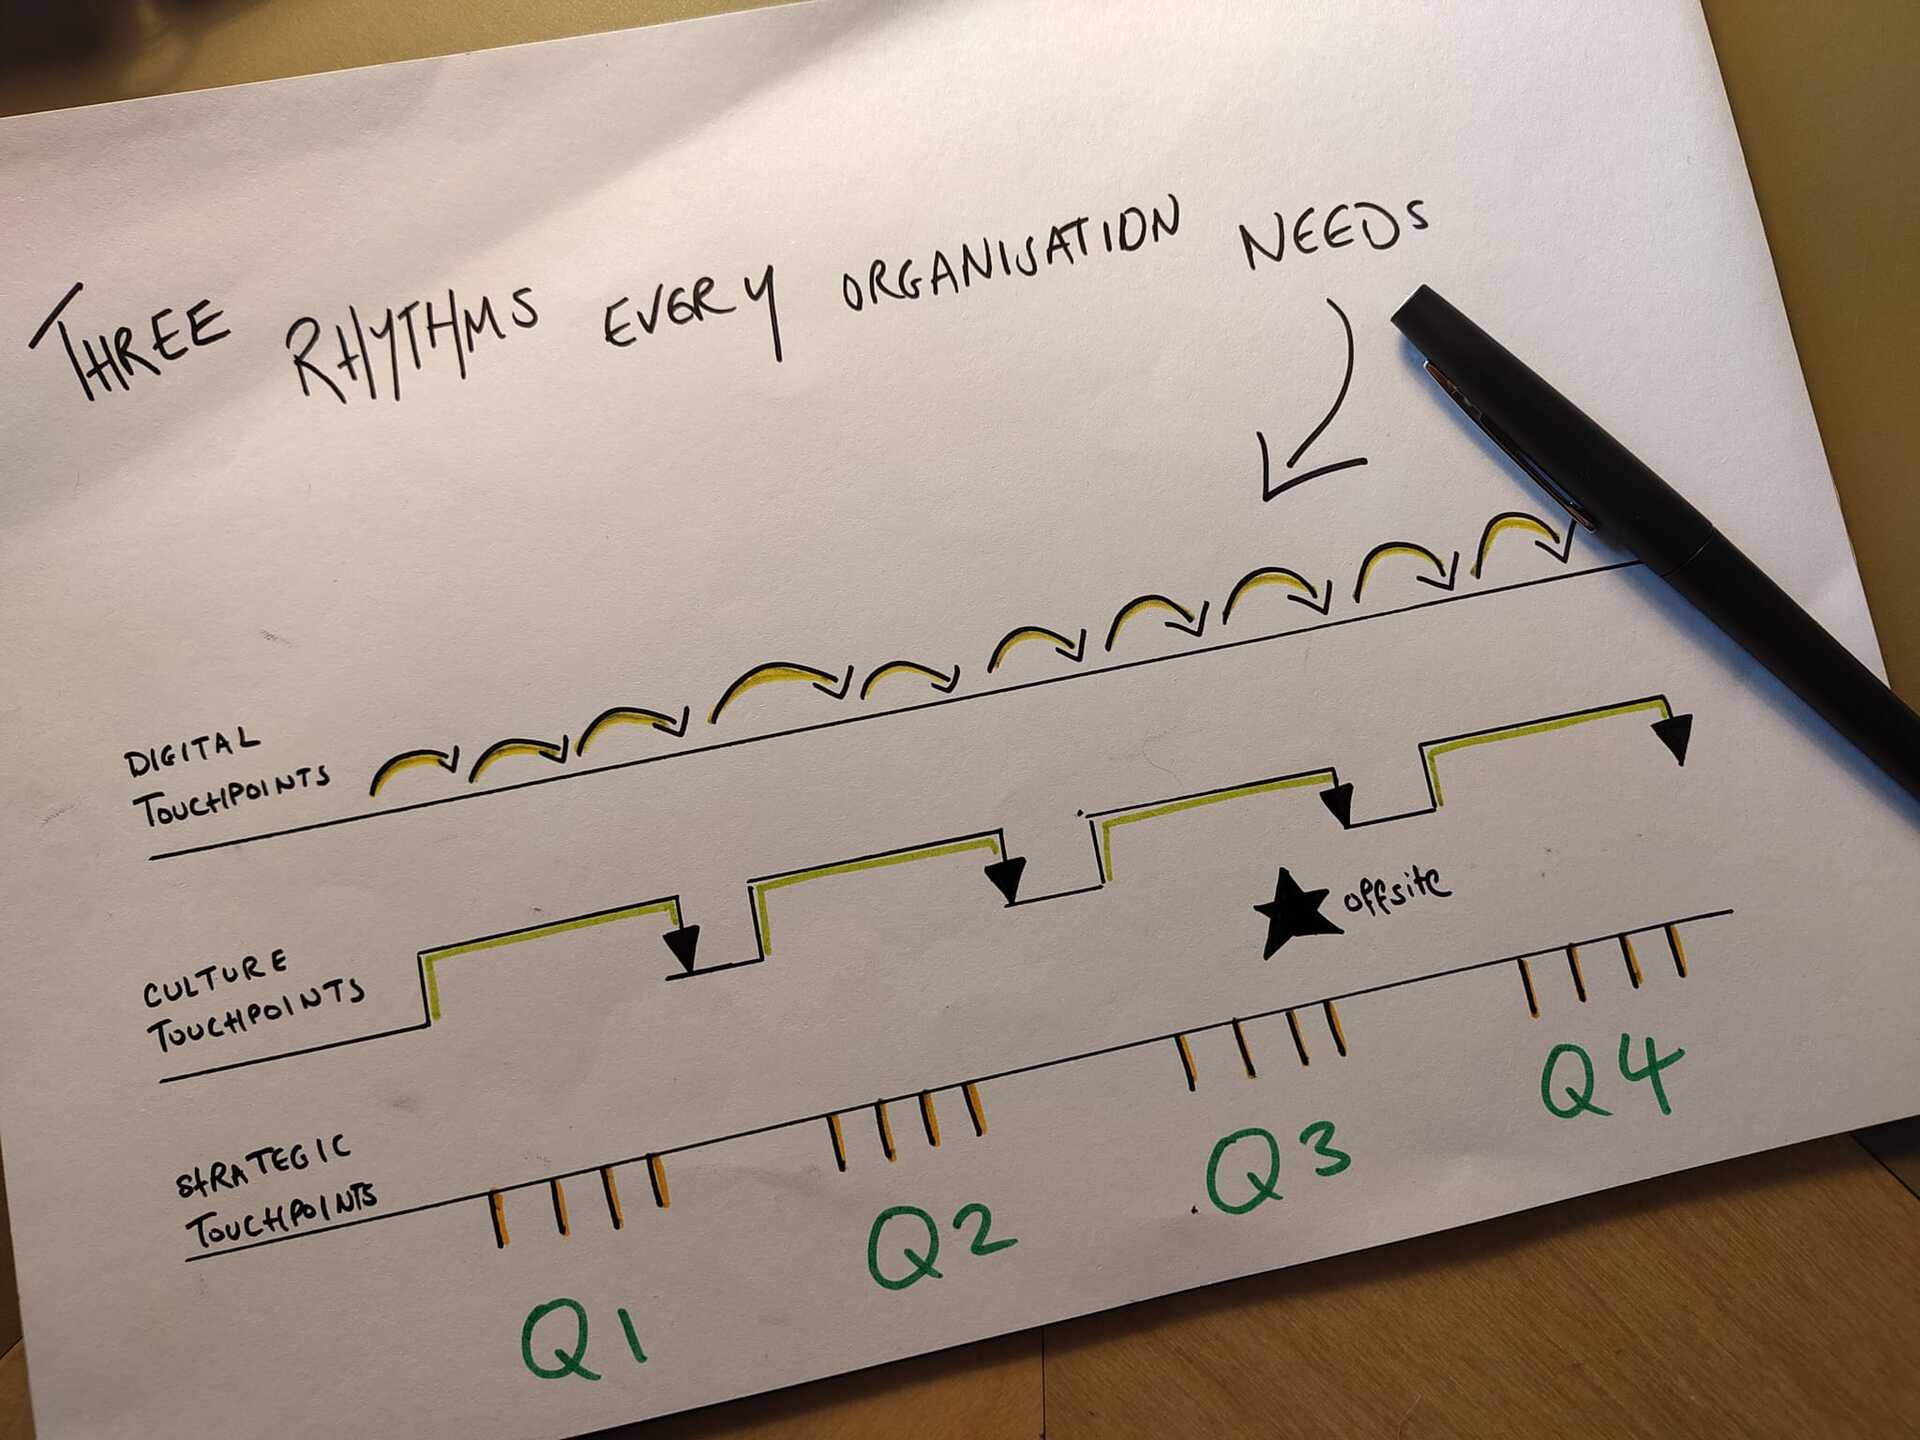 THREE RHYTHMS EVERY ORGANISATION NEEDS
DIGITAL
TOUCHPOINTS
CULTURE
TOUCHPOINTS
offsite
STRATEGIC
TOUCHPOINTS
Q1
Q2
Q3
Q4